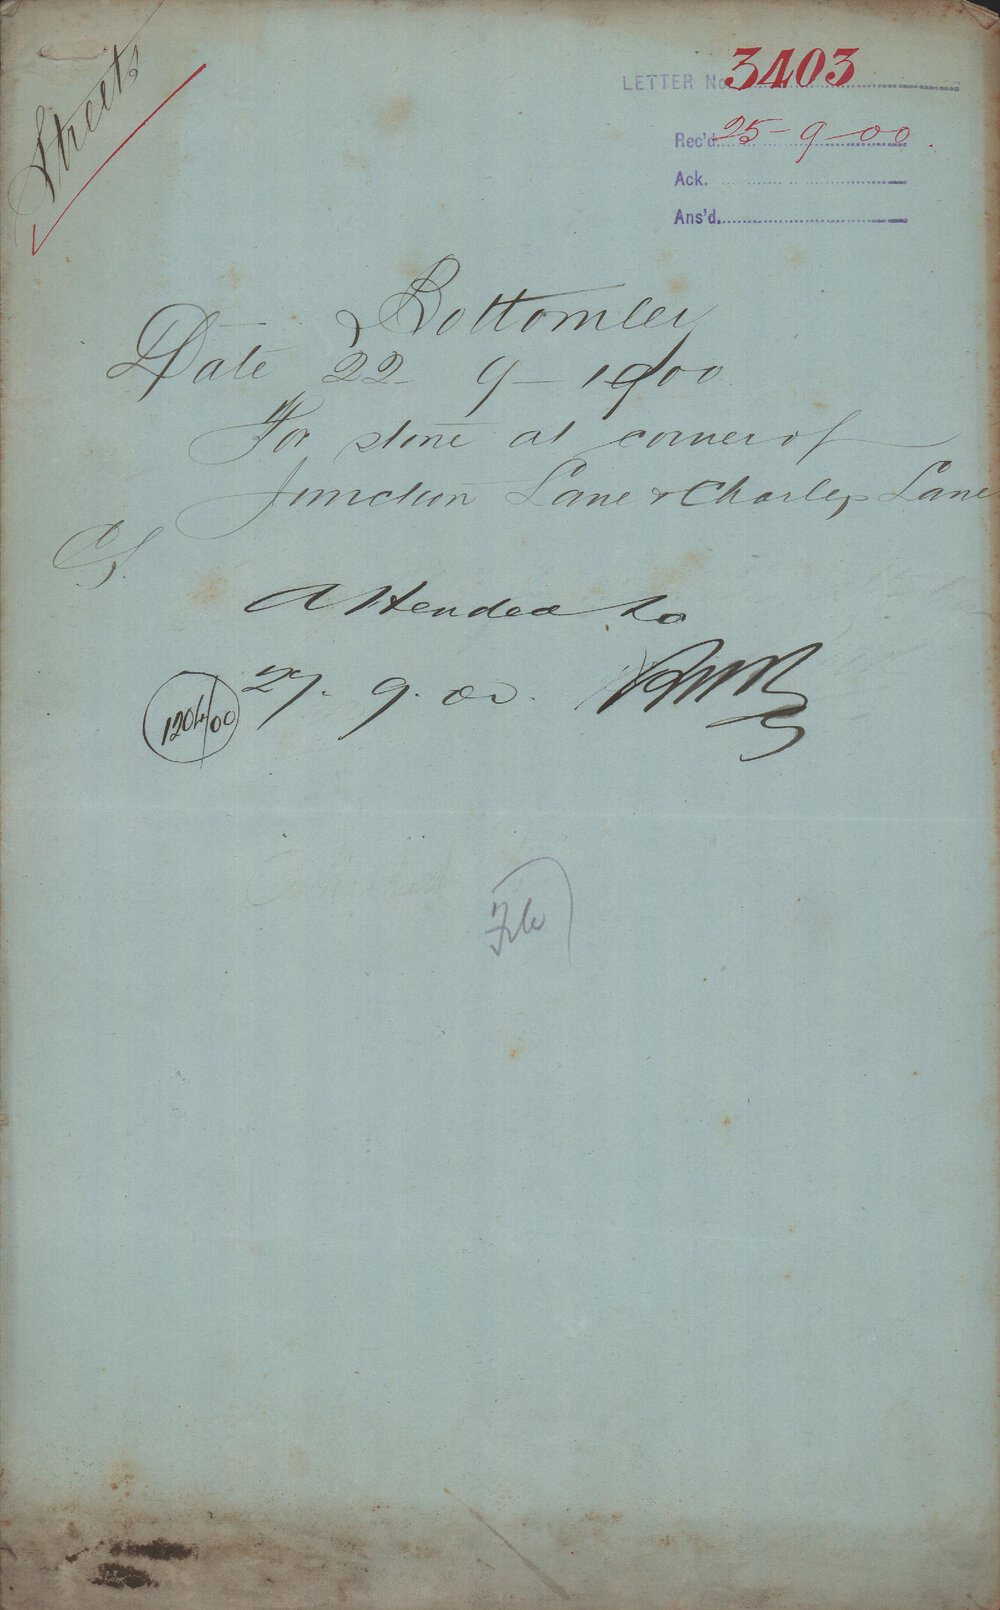 Streets
LETTER No. 3403
Rec'd. 25-9-00.
Ack.
Ans'd.
Bottomley
Date 22-9-1900
For stone at corner of
Junction Lane & Charles Lane
CS.
Attended to
27.9.00.
1204/00
File